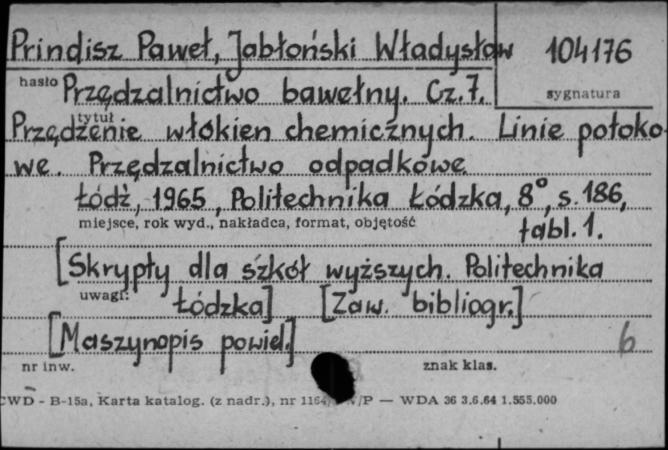 Prindisz Paweł, Jabłoński Władysław 104176
hasło Przędzalnictwo bawełny. Cz.7. sygnatura
tytuł
Przędzenie włókien chemicznych. Linie potoko
we. Przędzalnictwo odpadkowe.
Łódź, 1965, Politechnika Łódzka, 8°, s. 186,
miejsce, rok wyd., nakładca, format, objętość tabl. 1.
[Skrypty dla szkół wyższych. Politechnika
uwagi: Łódzka] [Zaw. bibliogr.]
[Maszynopis powiel.] 6
nr inw. znak klas.
CWD - B-15a, Karta katalog. (z nadr.), nr /P — WDA 36 3.6.64 1.555.000